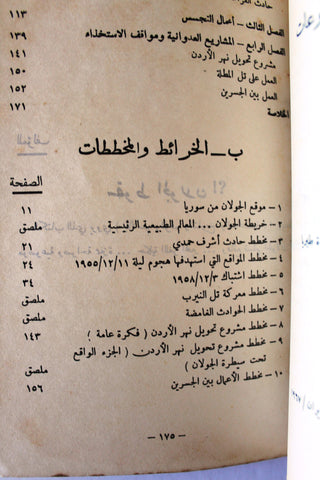 حادث
الفصل الثالث - أعمال التجسس ١١٣
الفصل الرابع - المشاريع العدوانية ومواقف الاستخذاء ١٣٩
مشروع تحويل نهر الأردن ١٤١
العمل على تل المطلة ١٥٠
العمل بين الجسرين ١٥٢
الخلاصة ١٧١
ب - الخرائط والمخططات
الصفحة
١ - موقع الجولان من سوريا ١١
٢ - خريطة الجولان ... المعالم الطبيعية الرئيسية ملصق
٣ - مخطط حادث أشرف حمدي ٢١
٤ - مخطط المواقع التي استهدفها هجوم ليلة ١٩٥٥/١٢/١١ ٢٤
٥ - مخطط اشتباك ١٩٥٨/١٢/٣ ٣٤
٦ - مخطط معركة تل النيرب ملصق
٧ - مخطط الحوادث الغامضة ملصق
٨ - مخطط مشروع تحويل نهر الأردن ( فكرة عامة ) ١٤٣
٩ - مخطط مشروع تحويل نهر الأردن ( الجزء الواقع
تحت سيطرة الجولان ) ملصق
١٠ - مخطط الأعمال بين الجسرين ١٥٦
- ١٧٥ -